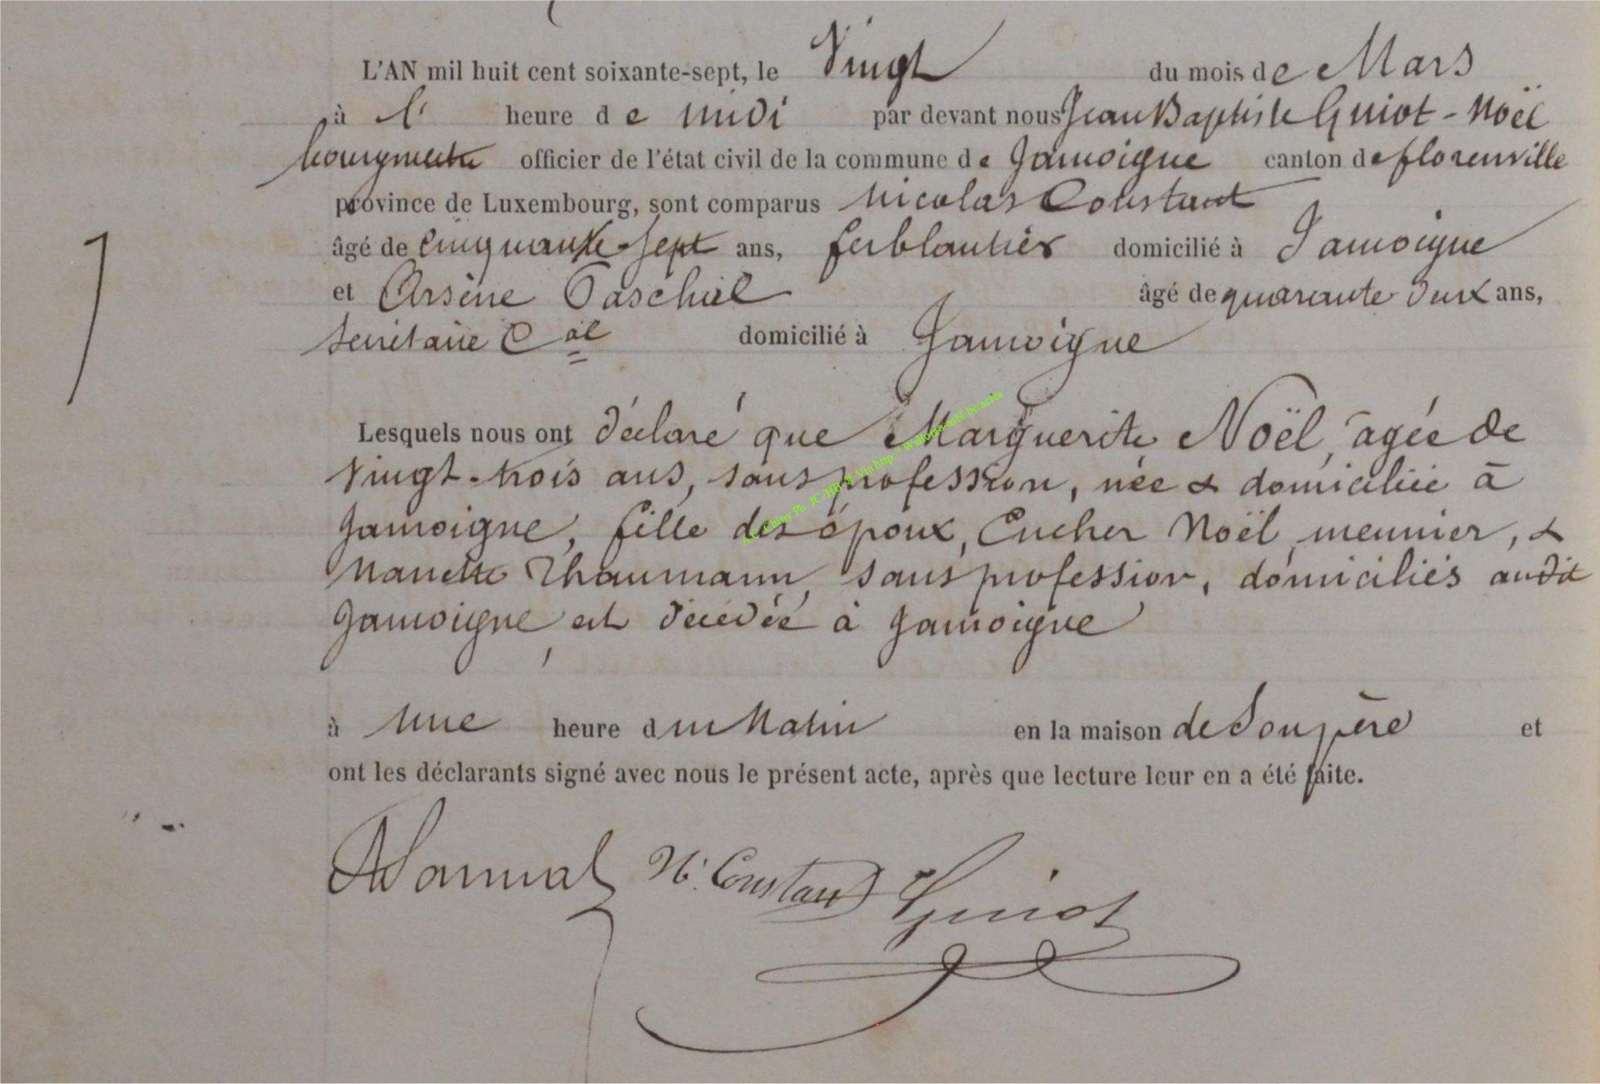 L'AN mil huit cent soixante-sept, le Vingt du mois de Mars
à l' heure de midi par devant nous Jean Baptiste Guiot-Noël
bourgmestre officier de l'état civil de la commune de Jamoigne canton de florenville
province de Luxembourg, sont comparus Nicolas Constant
âgé de cinquante-sept ans, ferblantier domicilié à Jamoigne
et Arsène âgé de quarante deux ans,
secrétaire Cal domicilié à Jamoigne
Lesquels nous ont déclaré que Marguerite Noël, agée de
vingt-trois ans, sans profession, née & domiciliée à
Jamoigne, fille des époux, Eucher Noël, meunier, &
Nanette Thaumann, sans profession, domiciliés audit
Jamoigne, est décédée à Jamoigne
à une heure du Matin en la maison de Son père et
ont les déclarants signé avec nous le présent acte, après que lecture leur en a été faite.
N. Constant Guiot